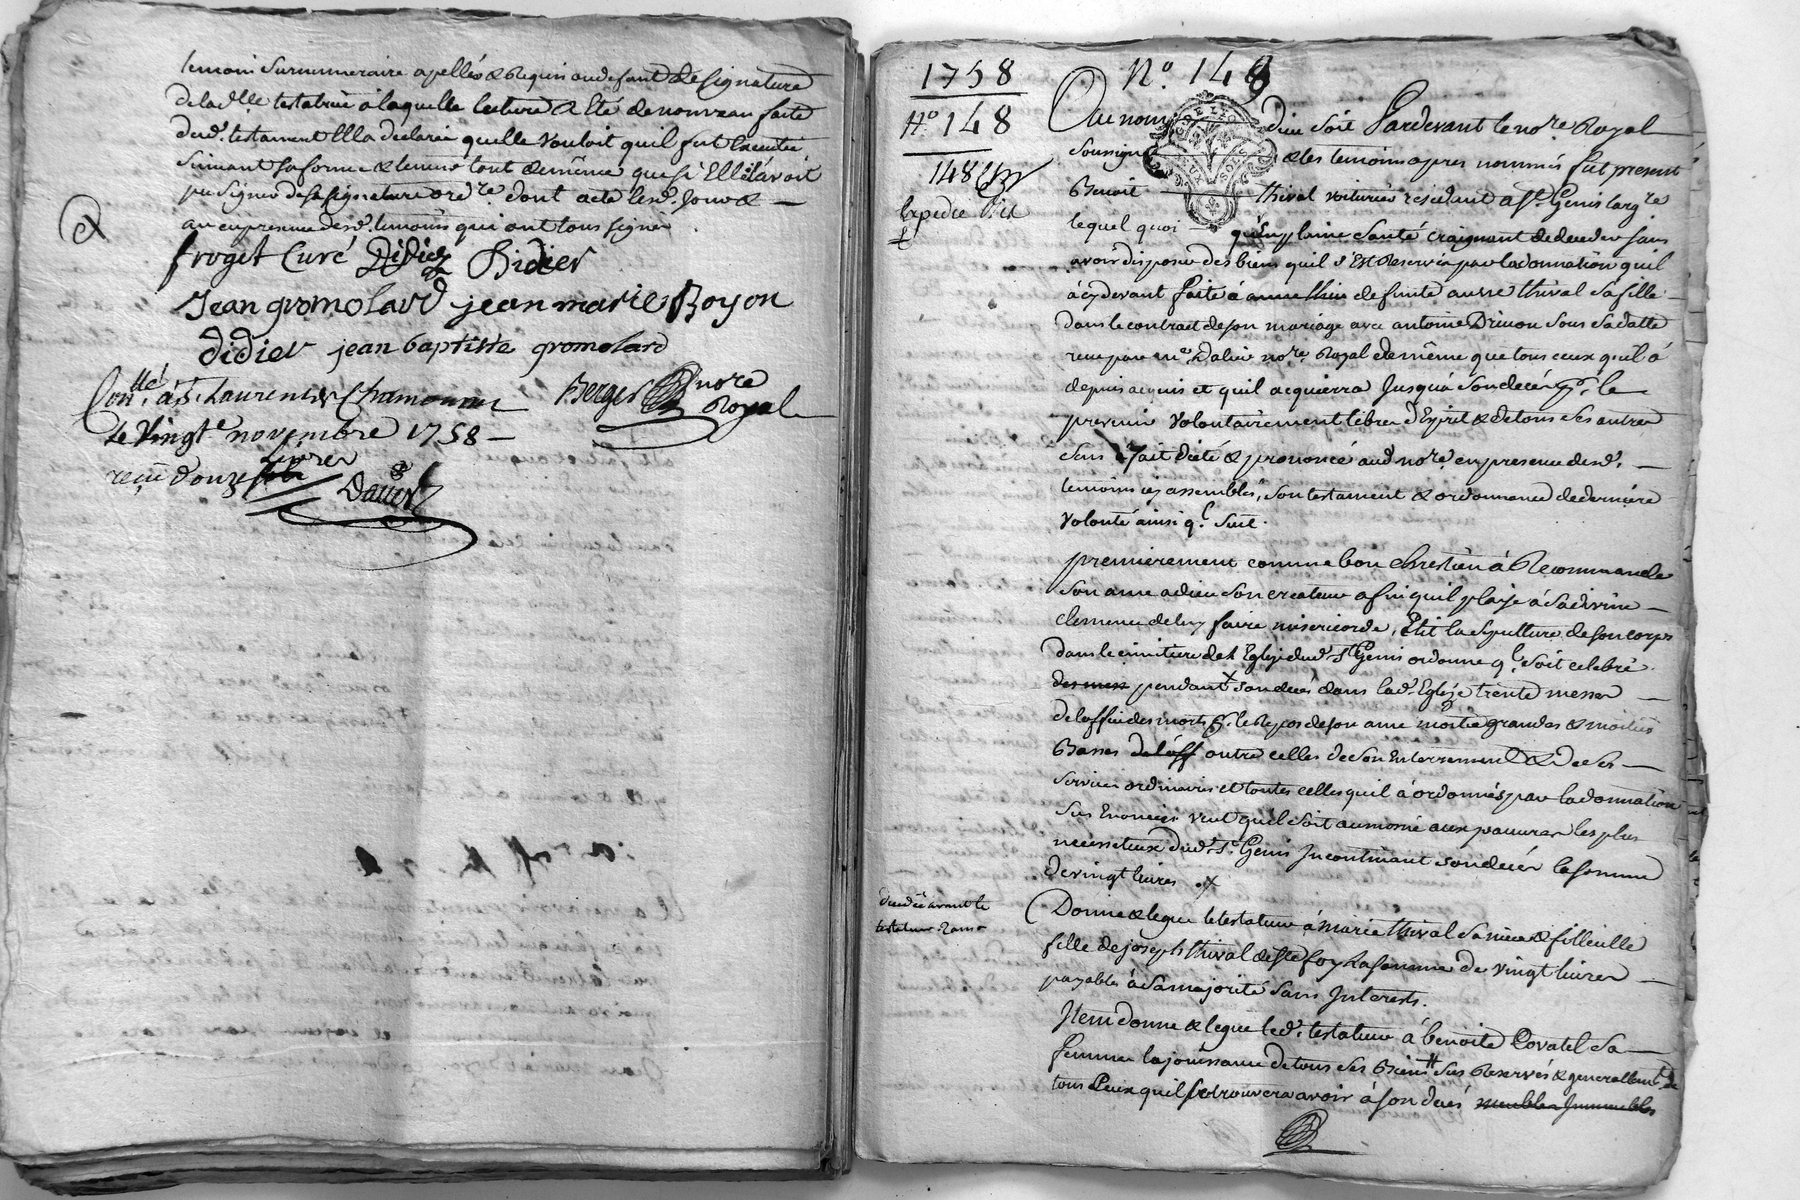 temoin surnumeraire apellés & Requis au defaut de signature
de lad.lle testatrice a laquelle lecture a Eté de nouveau faite
dud. testament Elle a declaré quelle vouloit quil fut Executé
suivant sa forme & teneur tout de même que si Elle l'avoit
pu signer de sa signature ord.re dont acte lesd. jour &
an en presence desd. temoins qui ont tous signé
froget Curé Didier Didier
Jean gromolard jean marie Royon
didier jean baptiste gromolard
Con.llé à S.t Laurent & Chamousset
Berger no.re Royal
Le Vingt.e novembre 1758
reçu douze livres
Dalier
1758
N.o 148
148
Expedié
N.o 148
Au nom de dieu soit Pardevant le no.re Royal
soussigné & les temoins apres nommés fut present
Benoit thival voiturier residant a S.t Genis Larg.re
lequel quoi qu'en pleine santé craignant de deceder sans
avoir disposé des biens quil s'Est Reservés par la donnation quil
à cydevant faite à deffunte anne thival sa fille
dans le contrat de son mariage avec antoine Drivon sous sa datte
reçu par m.e Dalier no.re Royal de même que tous ceux qu'il à
depuis acquis et quil acquierra Jusqu'a son decés p.r le
prevenir volontairement libre d'Esprit & de tous ses autres
sens à fait dicté & prononcé aud. no.re en presence desd.
temoins icy assemblés, son testament & ordonnance de derniere
Volonté ainsi q.l suit.
premierement comme bon chrestien à Recommandé
son ame a dieu son createur afin quil plaise à sa divine
clemence de luy faire misericorde, Elit la sepulture de son corps
dans le cimitiere de l'Eglise dud. S.t Genis ordonne q.l soit celebré
pendant + son decés dans lad. Eglise trente messes
de l'office des morts p.r le Repos de son ame moitié grandes & moitiés
Basses outre celles de son Enterrement & de ses
services ordinaires et toutes celles quil à ordonnés par la donnation
sus Enoncée veut quil soit aumoné aux pauvres les plus
necessiteux dud. S.t Genis Incontinant son decés la somme
de vingt livres +
decedée avant le
testateur
Donne & legue le testateur à marie thival sa niece & filleulle
fille de joseph thival de S.te foy La somme de vingt livres
payables à sa majorité sans Interests.
Item donne & legue led. testateur à benoite Covatel sa
femme la jouissance de tous ses Biens # sus Reservés & generallem.t de
tous Ceux quil se trouvera avoir à son decés meubles Immeubles